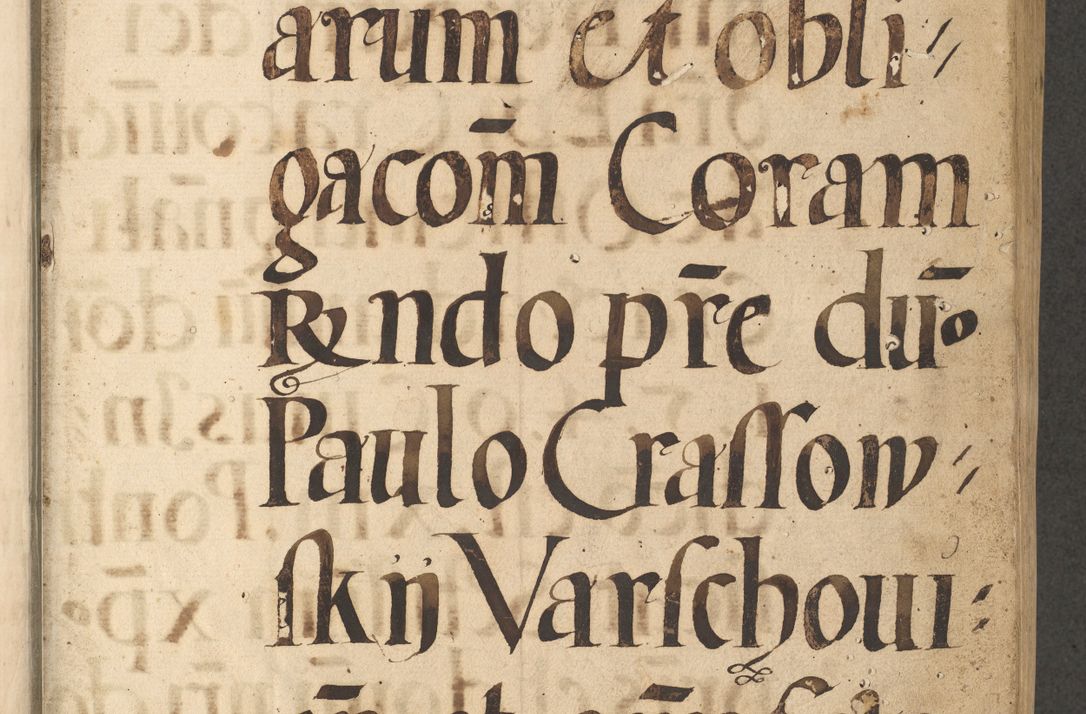 arum et obli⸗
gacom̄ Coram
Rndo pr̄e dūo
Paulo Craſſow⸗
ſkÿ Varſchoui⸗